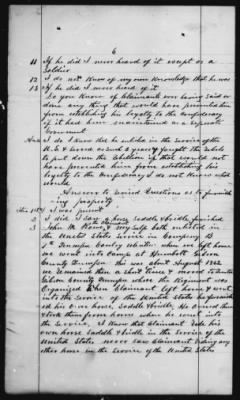 6
11 If he did I never heard of it except as a
Soldier
12 I do not know of my own knowledge that he was
13 If he did I never heard of it
Do you know of Claimants ever having said or
done any thing that would have prevented him
from establishing his loyalty to the Confederacy
if it had been maintained as a separate
Government
Ans I do I know that he enlisted in the service of the
U.S. & served as such
to put down the Rebellion if that would not
have prevented him from establishing his
loyalty to the Confederacy I do not know what
would
Answers to Questions as to furnish-
ing property
1st I was present
2 I did I saw a horse Saddle & bridle furnished
3 John H. and myself both enlisted in
the United States Service in Company
Tennessee Cavalry when we left home
we went into Camp at Gibson
County Tennessee this was about August 1862
we remained there a short time & moved to
Gibson County Tennessee where the Regiment was
Organized When Claimant left home & went
into the Service of the United States he furnish-
ed his own horse, Saddle & bridle, He owned them
& took them from home when he went into
the Service, I know that Claimant rode his
own horse Saddle & bridle in the Service of the
United States never saw Claimant riding any
other horse in the Service of the United States